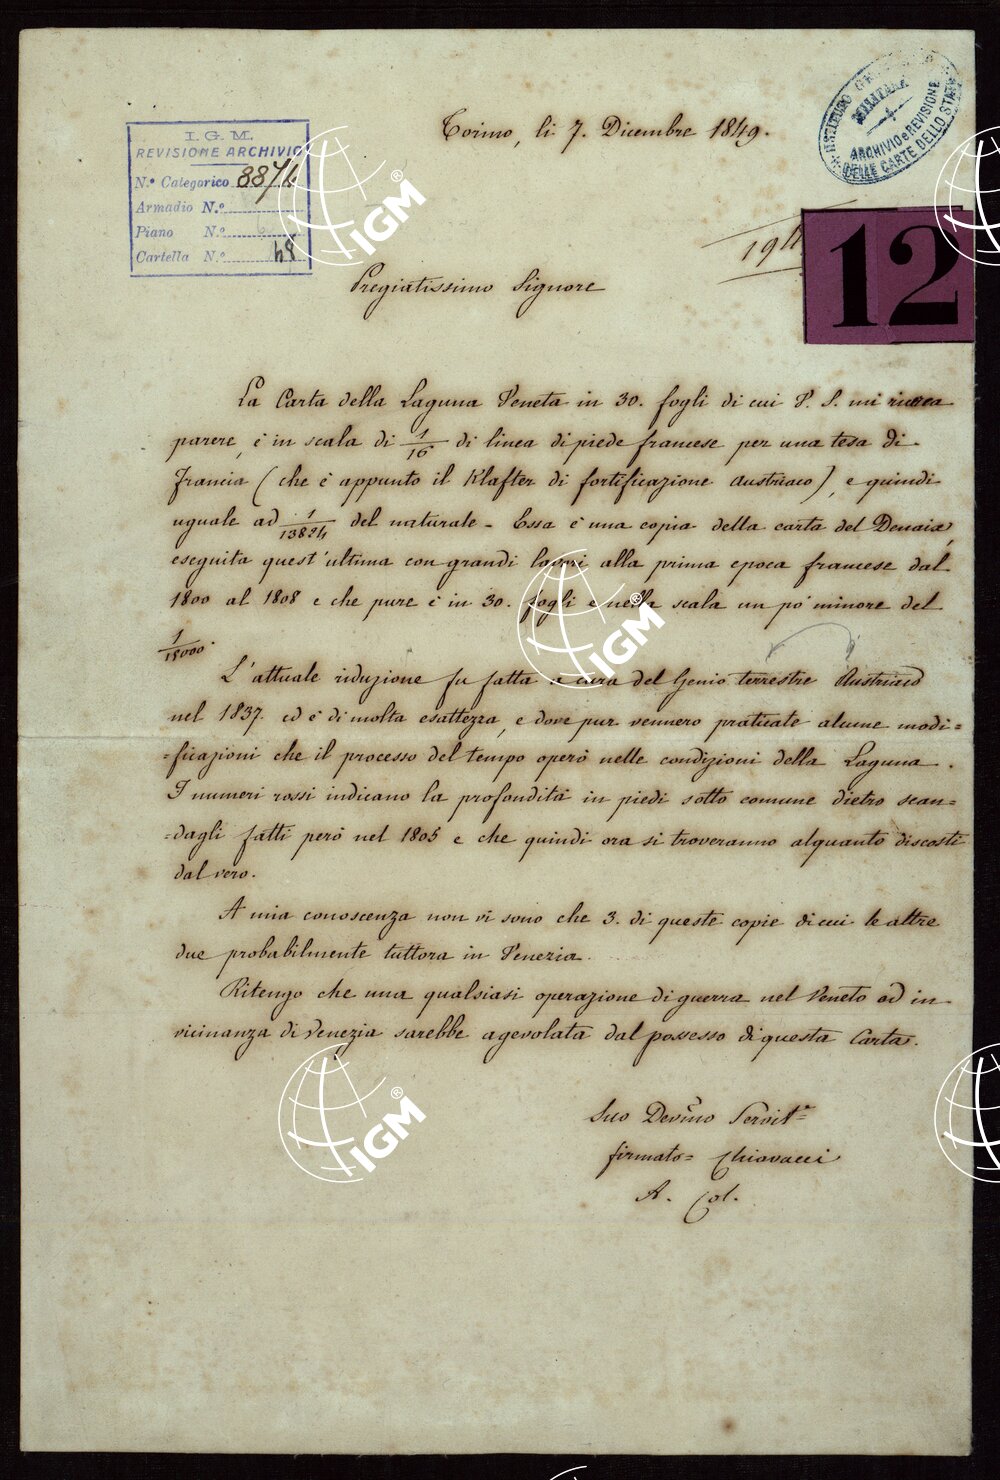 Torino, li 7. Dicembre 1849.
ISTITUTO GEOGRAFICO
MILITARE
ARCHIVIO e REVISIONE
DELLE CARTE DELLO STATO
I.G.M.
REVISIONE ARCHIVIO
N.º Categorico 88/4
Armadio N.º
Piano N.º
Cartella N.º 48
12
Pregiatissimo Signore
La Carta della Laguna Veneta in 30. fogli di cui V. S. mi ricerca
parere, è in scala di 1/16 di linea di piede francese per una tesa di
Francia (che è appunto il Klafter di fortificazione Austriaco), e quindi
uguale ad 1/13824 del naturale - Essa è una copia della carta del Denaix,
eseguita quest'ultima con grandi lavori alla prima epoca francese dal
1800 al 1808 e che pure è in 30. fogli e nella scala un pò minore del
1/15000.
L'attuale riduzione fu fatta a cura del Genio terrestre Austriaco
nel 1837. ed è di molta esattezza, e dove pur vennero praticate alcune modi=
=ficazioni che il processo del tempo operò nelle condizioni della Laguna.
I numeri rossi indicano la profondità in piedi sotto comune dietro scan=
=dagli fatti però nel 1805 e che quindi ora si troveranno alquanto discosti
dal vero.
A mia conoscenza non vi sono che 3. di queste copie di cui le altre
due probabilmente tuttora in Venezia.
Ritengo che una qualsiasi operazione di guerra nel Veneto od in
vicinanza di Venezia sarebbe agevolata dal possesso di questa Carta.
Suo Dev.mo Servit.e
firmato= Chiavacci
A. Col.
IGM®
IGM®
IGM®
IGM